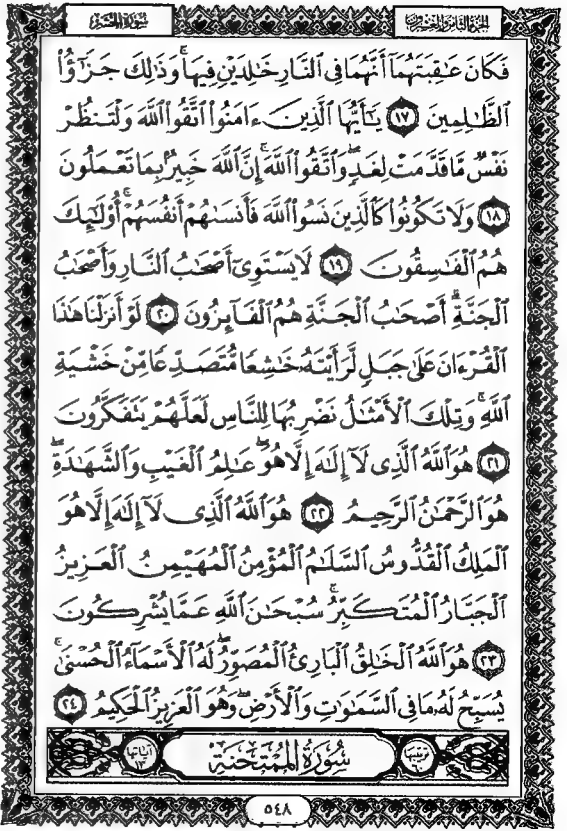 الجزء الثامن والعشرون
سورة الحشر
فَكَانَ عَٰقِبَتَهُمَآ أَنَّهُمَا فِى النَّارِ خَٰلِدَيْنِ فِيهَا ۚ وَذَٰلِكَ جَزَٰٓؤُا۟
الظَّٰلِمِينَ ١٧ يَٰٓأَيُّهَا الَّذِينَ ءَامَنُوا۟ اتَّقُوا۟ اللَّهَ وَلْتَنظُرْ
نَفْسٌ مَّا قَدَّمَتْ لِغَدٍ ۖ وَاتَّقُوا۟ اللَّهَ ۚ إِنَّ اللَّهَ خَبِيرٌۢ بِمَا تَعْمَلُونَ
١٨ وَلَا تَكُونُوا۟ كَالَّذِينَ نَسُوا۟ اللَّهَ فَأَنسَىٰهُمْ أَنفُسَهُمْ ۚ أُو۟لَٰٓئِكَ
هُمُ الْفَٰسِقُونَ ١٩ لَا يَسْتَوِىٓ أَصْحَٰبُ النَّارِ وَأَصْحَٰبُ
الْجَنَّةِ ۚ أَصْحَٰبُ الْجَنَّةِ هُمُ الْفَآئِزُونَ ٢٠ لَوْ أَنزَلْنَا هَٰذَا
الْقُرْءَانَ عَلَىٰ جَبَلٍ لَّرَأَيْتَهُۥ خَٰشِعًا مُّتَصَدِّعًا مِّنْ خَشْيَةِ
اللَّهِ ۚ وَتِلْكَ الْأَمْثَٰلُ نَضْرِبُهَا لِلنَّاسِ لَعَلَّهُمْ يَتَفَكَّرُونَ
٢١ هُوَ اللَّهُ الَّذِى لَآ إِلَٰهَ إِلَّا هُوَ ۖ عَٰلِمُ الْغَيْبِ وَالشَّهَٰدَةِ ۖ
هُوَ الرَّحْمَٰنُ الرَّحِيمُ ٢٢ هُوَ اللَّهُ الَّذِى لَآ إِلَٰهَ إِلَّا هُوَ
الْمَلِكُ الْقُدُّوسُ السَّلَٰمُ الْمُؤْمِنُ الْمُهَيْمِنُ الْعَزِيزُ
الْجَبَّارُ الْمُتَكَبِّرُ ۚ سُبْحَٰنَ اللَّهِ عَمَّا يُشْرِكُونَ
٢٣ هُوَ اللَّهُ الْخَٰلِقُ الْبَارِئُ الْمُصَوِّرُ ۖ لَهُ الْأَسْمَآءُ الْحُسْنَىٰ ۚ
يُسَبِّحُ لَهُۥ مَا فِى السَّمَٰوَٰتِ وَالْأَرْضِ ۖ وَهُوَ الْعَزِيزُ الْحَكِيمُ ٢٤
ترتيبها ٦٠
سُورَةُ الْمُمْتَحنَةِ
آياتها ١٣
٥٤٨